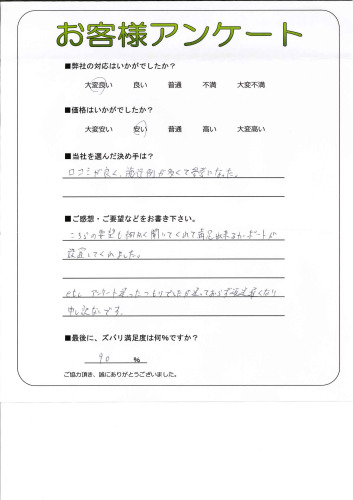 お客様アンケート
■弊社の対応はいかがでしたか?
大変良い 良い 普通 不満 大変不満
■価格はいかがでしたか?
大変安い 安い 普通 高い 大変高い
■当社を選んだ決め手は?
口コミが良く、施行例が多くて参考になった。
■ご感想・ご要望などをお書き下さい。
こちらの要望も細かく聞いてくれて満足出来るカーポートが
設置してくれました。
アンケート送ったつもりでしたが送っておらず遅くなり
申し訳ないです。
■最後に、ズバリ満足度は何%ですか?
90 %
ご協力頂き、誠にありがとうございました。